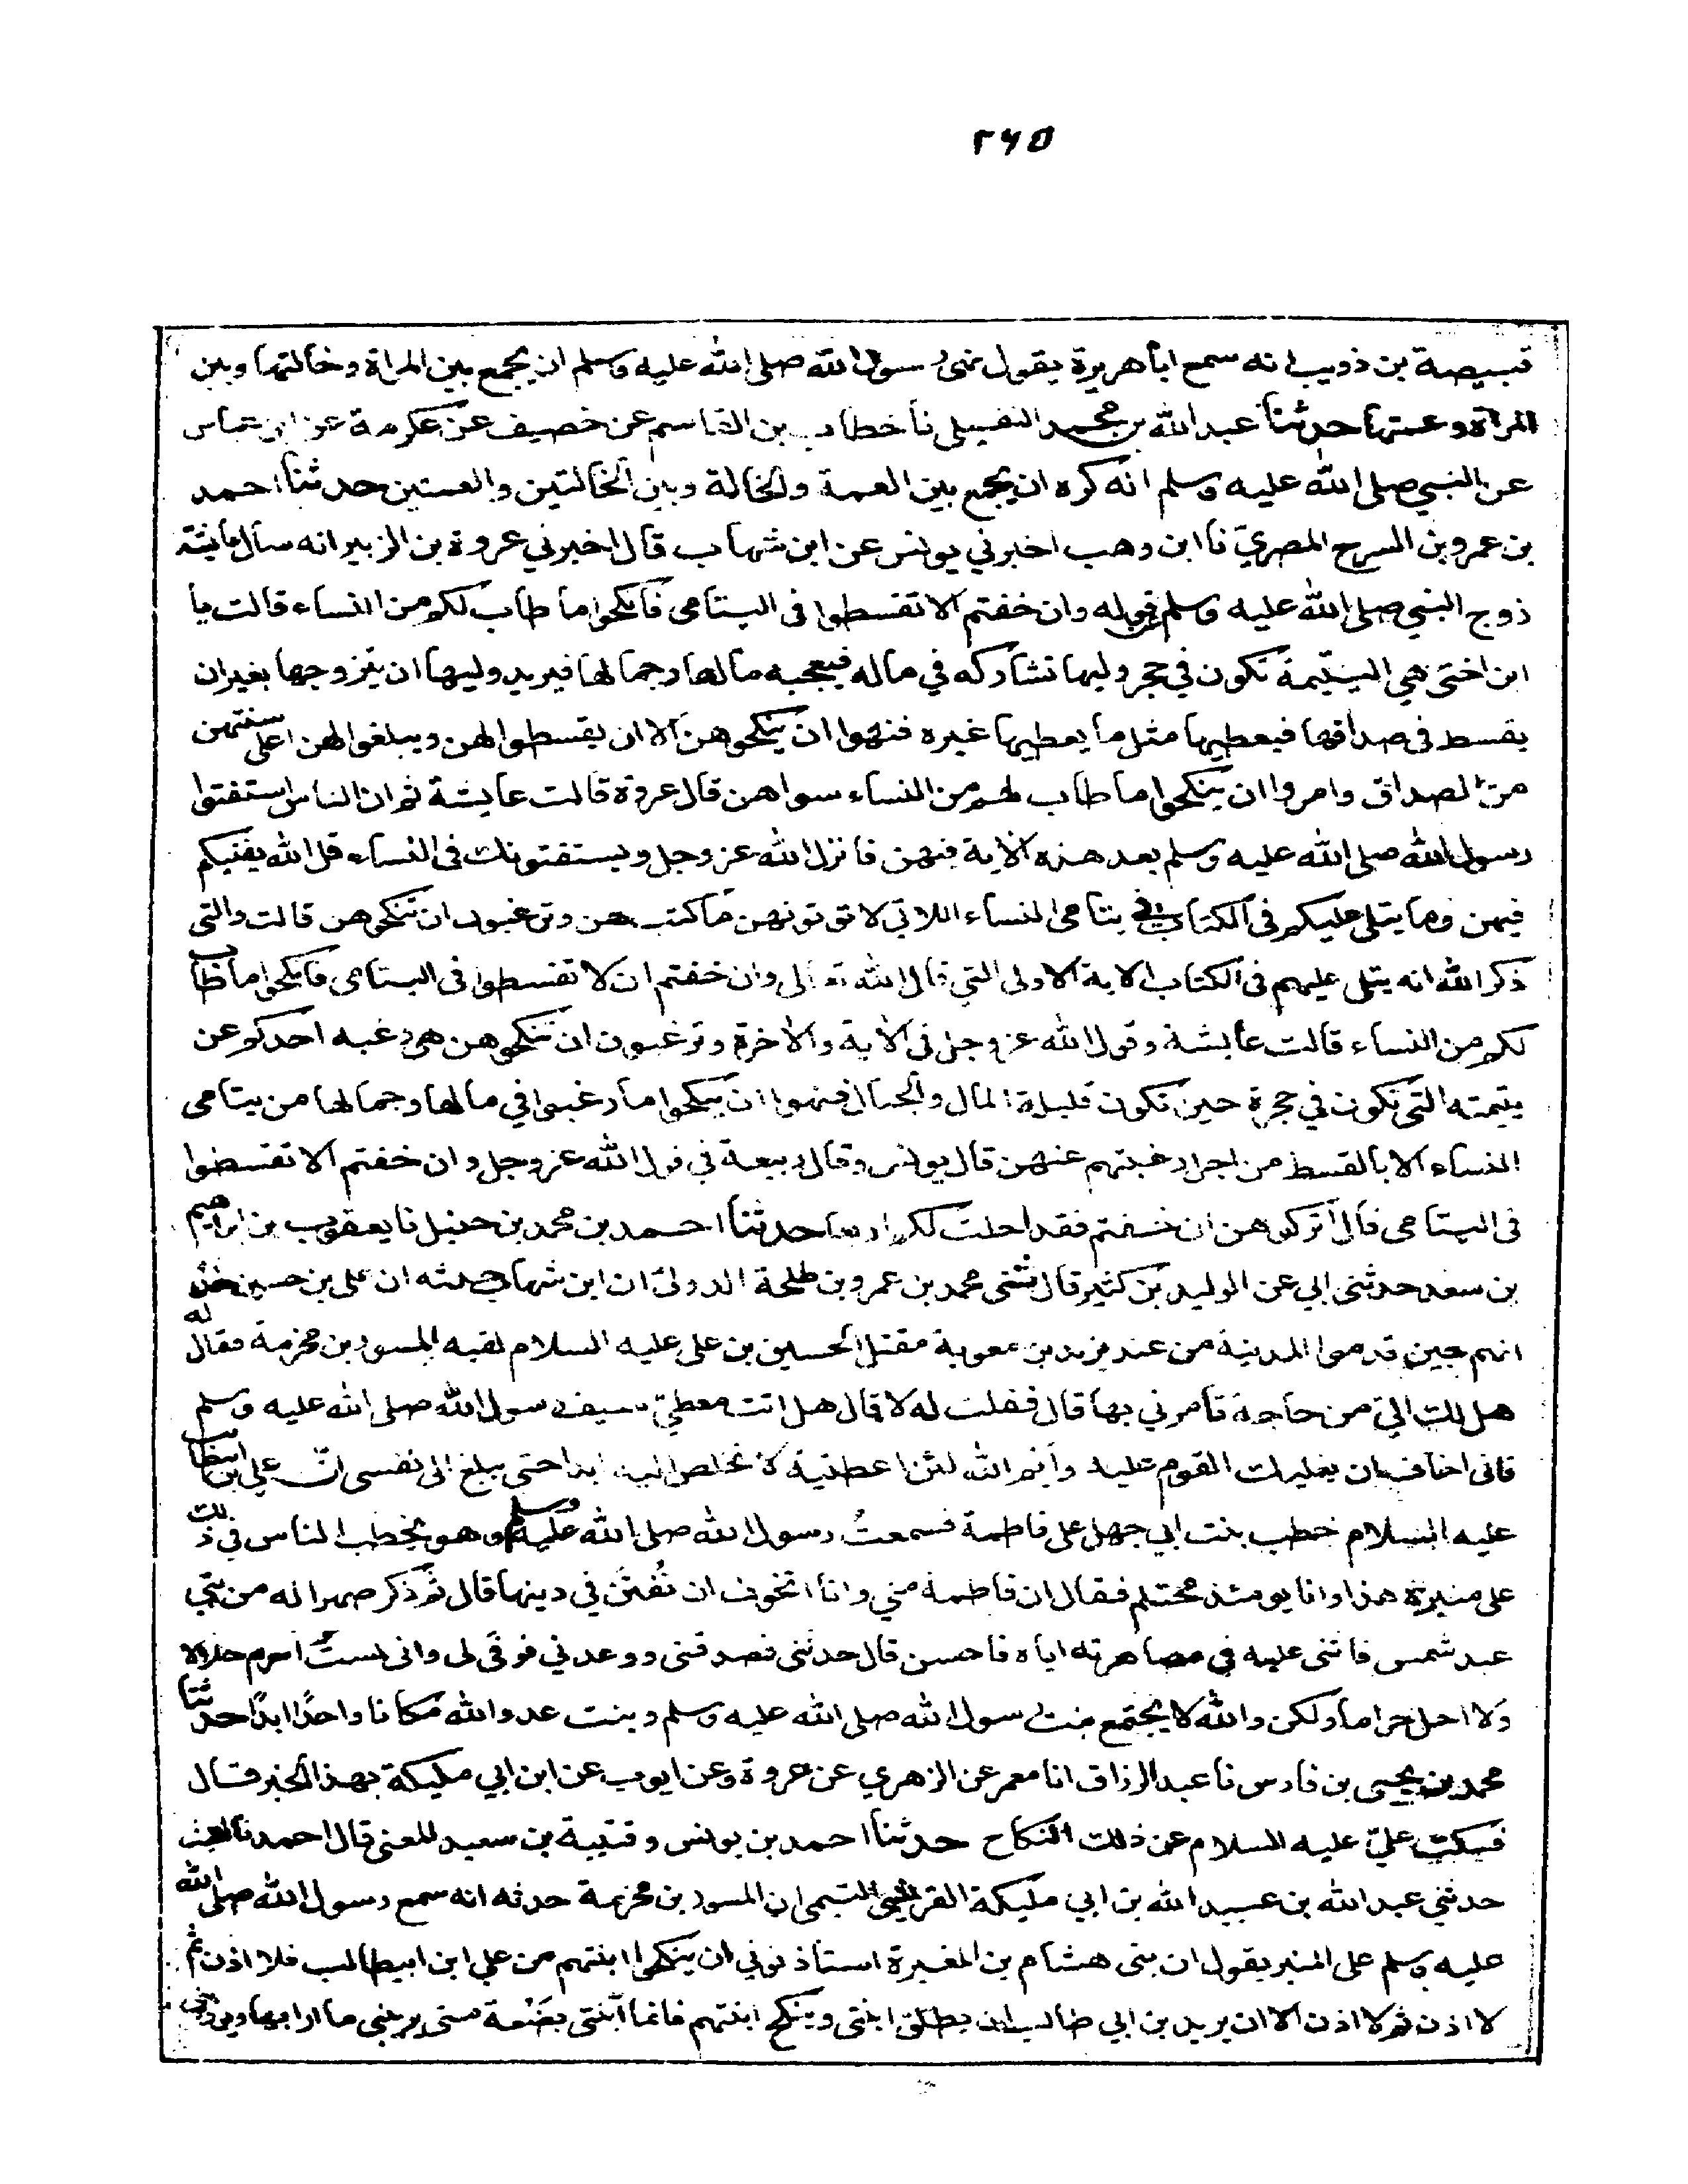 ٢٧٥
قبيصة بن ذويب انه سمع ابا هريرة يقول نهى رسول الله صلى الله عليه وسلم ان يجمع بين المراة وخالتها وبين
المراة وعمتها حدثنا عبد الله بن محمد النفيلى نا خطاب بن القاسم عن خصيف عن عكرمة عن ابن عباس
عن النبي صلى الله عليه وسلم انه كره ان يجمع بين العمة والخالة وبين الخالتين والعمتين حدثنا احمد
بن عمرو بن السرح المصري نا ابن وهب اخبرني يونس عن ابن شهاب قال اخبرني عروة بن الزبير انه سال عايشة
زوج النبي صلى الله عليه وسلم عن قوله وان خفتم الا تقسطوا فى اليتامى فانكحوا ما طاب لكم من النساء قالت يا
ابن اختى هي اليتيمة تكون في حجر وليها تشاركه في ماله فيعجبه مالها وجمالها فيريد وليها ان يتزوجها بغير ان
يقسط فى صداقها فيعطيها مثل ما يعطيها غيره فنهوا ان ينكحوهن الا ان يقسطوا لهن ويبلغوا لهن اعلى سنتهن
من الصداق وامروا ان ينكحوا ما طاب لهم من النساء سواهن قال عروة قالت عايشة ثم ان الناس استفتوا
رسول الله صلى الله عليه وسلم بعد هذه الاية فيهن فانزل الله عز وجل ويستفتونك فى النساء قل الله يفتيكم
فيهن وما يتلى عليكم فى الكتاب في يتامى النساء اللاتي لا تؤتونهن ما كتب لهن وترغبون ان تنكحوهن قالت والتى
ذكر الله انه يتلى عليهم فى الكتاب الاية الاولى التي قال الله تعالى وان خفتم ان لا تقسطوا فى اليتامى فانكحوا ما طاب
لكم من النساء قالت عايشة وقول الله عز وجل فى الاية والاخرة وترغبون ان تنكحوهن هى رغبه احدكم عن
يتيمته التى تكون في حجرة حين تكون قليلة المال والجمال فنهوا ان ينكحوا ما رغبوا في مالها وجمالها من يتامى
النساء الا بالقسط من اجل رغبتهم عنهن قال يونس وقال ربيعة في قول الله عز وجل وان خفتم الا تقسطوا
فى اليتامى قال اتركوهن ان خفتم فقد احلت لكم اربعا حدثنا احمد بن محمد بن حنبل نا يعقوب بن ابراهيم
بن سعد حدثنى ابي عن الوليد بن كثير قال ثنى محمد بن عمرو بن طلحة الدولي ان ابن شهاب حدثه ان على بن حسين حدثه
انهم حين قدموا المدينة من عند يزيد بن معوية مقتل الحسين بن على عليه السلام لقيه المسور بن مخرمة فقال له
هل لك الي من حاجة تامرني بها قال فقلت له لا قال هل انت معطي سيف رسول الله صلى الله عليه وسلم
فانى اخاف ان يغلبك القوم عليه وايم الله لئن اعطيتنيه لا يخلص اليه ابدا حتى يبلغ الى نفسى ان على بن ابيطالب
عليه السلام خطب بنت ابي جهل على فاطمة فسمعت رسول الله صلى الله عليه وسلم وهو يخطب الناس في ذلك
على منبرة هذا وانا يومئذ محتلم فقال ان فاطمة مني وانا اتخوف ان تفتن في دينها قال ثم ذكر صهرا له من بني
عبد شمس فاثنى عليه في مصاهرته اياه فاحسن قال حدثنى فصدقنى ووعدني فوفى لى وانى لست احرم حلالا
ولا احل حراما ولكن والله لا يجتمع بنت رسول الله صلى الله عليه وسلم وبنت عدو الله مكانا واحدا ابدا حدثنا
محمد بن يحيى بن فارس نا عبد الرزاق انا معمر عن الزهري عن عروة وعن ايوب عن ابن ابي مليكة بهذا الخبر قال
فسكت علي عليه السلام عن ذلك النكاح حدثنا احمد بن يونس وقتيبة بن سعيد المعنى قال احمد نا الليث
حدثني عبد الله بن عبيد الله بن ابي مليكة القرشى التيمى ان المسور بن مخرمة حدثه انه سمع رسول الله صلى الله
عليه وسلم على المنبر يقول ان بنى هشام بن المغيرة استاذنوني ان ينكحوا ابنتهم من علي ابن ابيطالب فلا اذن ثم
لا اذن ثم لا اذن الا ان يريد بن ابي طالب ان يطلق ابنتى وينكح ابنتهم فانما ابنتى بضعة منى يريبني ما ارابها ويوذينى